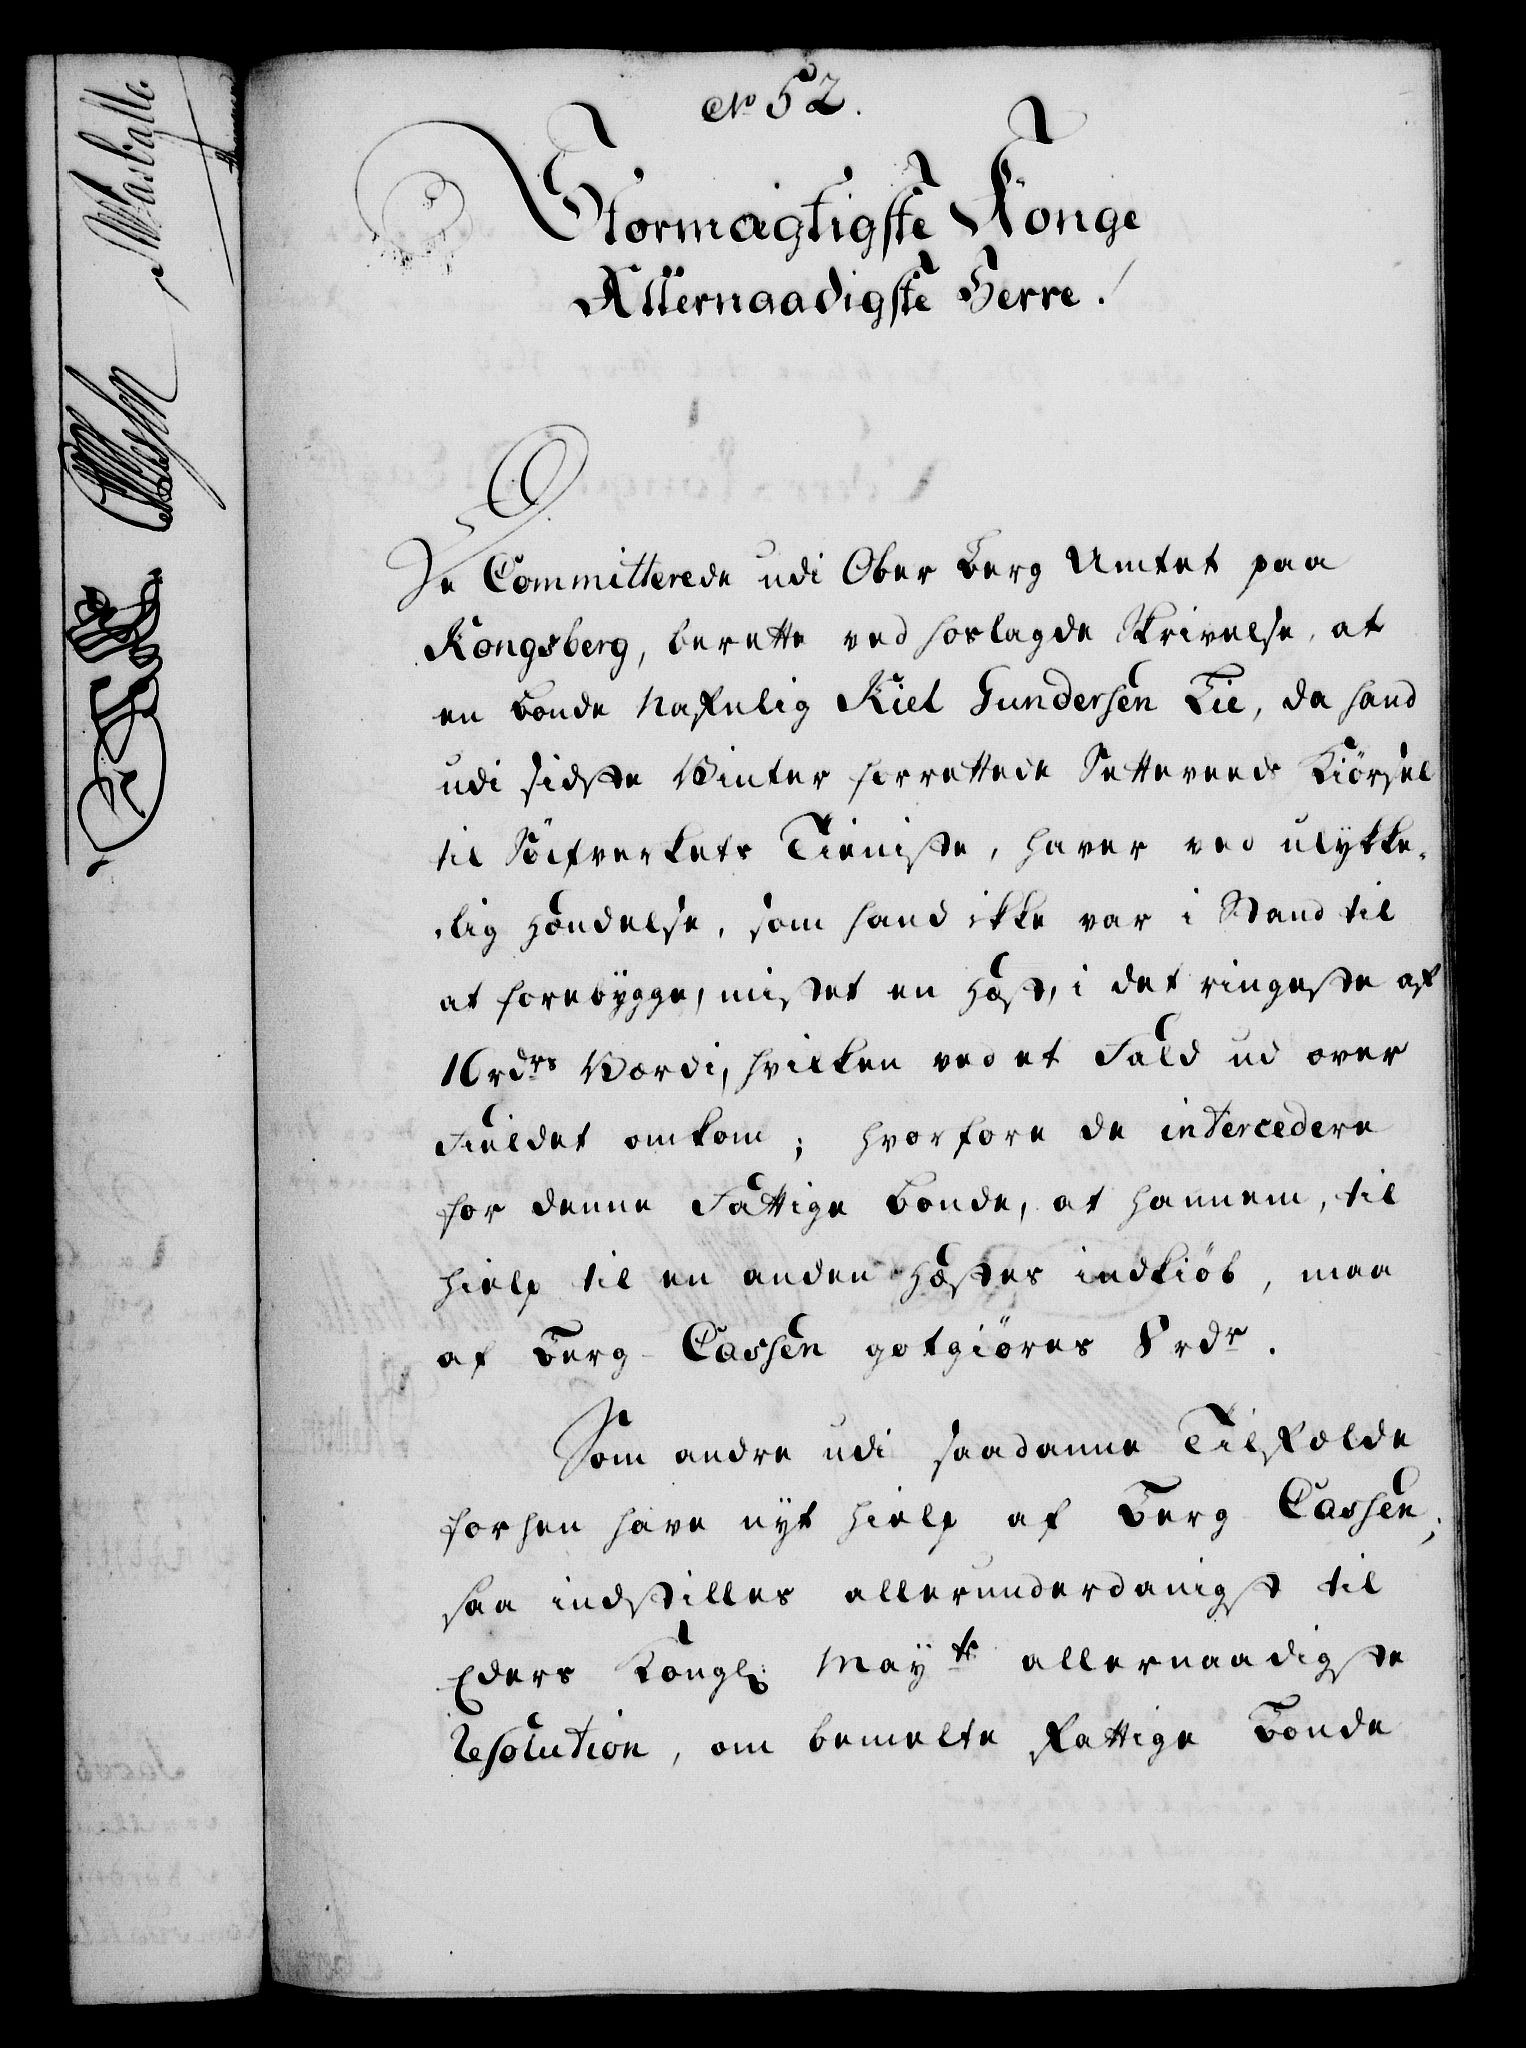 No 52.
Stormægtigste Konge
Allernaadigste Herre!
De Committerede udi Ober Berg Amtet paa
Kongsberg, berette ved hoslagde Skrivelse, at
en Bonde Nafnlig Kiel Gundersen Lie, da hand
udi sidste Winter forrettede Setteveeds Kiörsel
til Sölfverkets Tieniste, haver ved ulÿkke-
-lig Hændelse, som hand ikke var i Stand til
at forebÿgge, mistet en Hæst, i det ringeste af
16 rdrs Værdi, hvilken ved et Fald ud over
Fieldet omkom; hvorfore de intercedere
for denne Fattige Bonde, at hannem, til
hielp til en anden Hæstes indkiöb, maa
af Berg-Cassen gotgiöres 8 rdr.
Som andre udi saadanne Tilfælde
forhen have nÿt hielp af Berg-Cassen;
saa indstilles allerunderdanigst til
Eders Kongl: Maÿts allernaadigste
Resolution, om bemelte Fattige Bonde